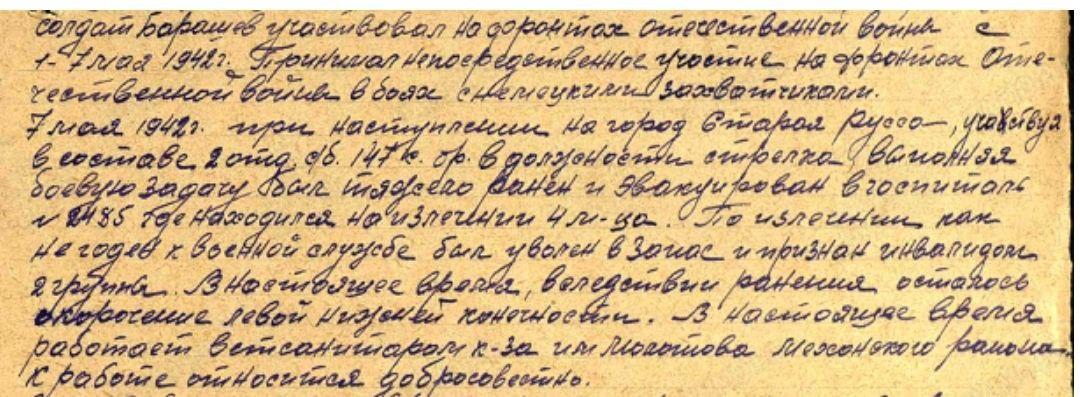 солдат Барашев участвовал на фронтах отечественной войны с
1-7 мая 1942г. Принимал непосредственное участие на фронтах Оте-
чественной войны в боях с немецкими захватчиками.
7 мая 1942г. при наступлении на город Старая Русса, участвуя
в составе 2 отд. сб. 147 с. бр. в должности стрелка, выполняя
боевую задачу был тяжело ранен и эвакуирован в госпиталь
№ 2485 где находился на излечении 4 м-ца. По излечении как
не годен к военной службе был уволен в запас и признан инвалидом
2 группы. В настоящее время, вследствии ранения осталось
укорочение левой нижней конечности. В настоящее время
работает ветсанитаром к-за им Молотова Мехонского района.
К работе относится добросовестно.